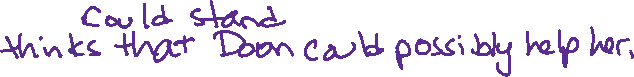 could stand
thinks that Doon could possibly help her.